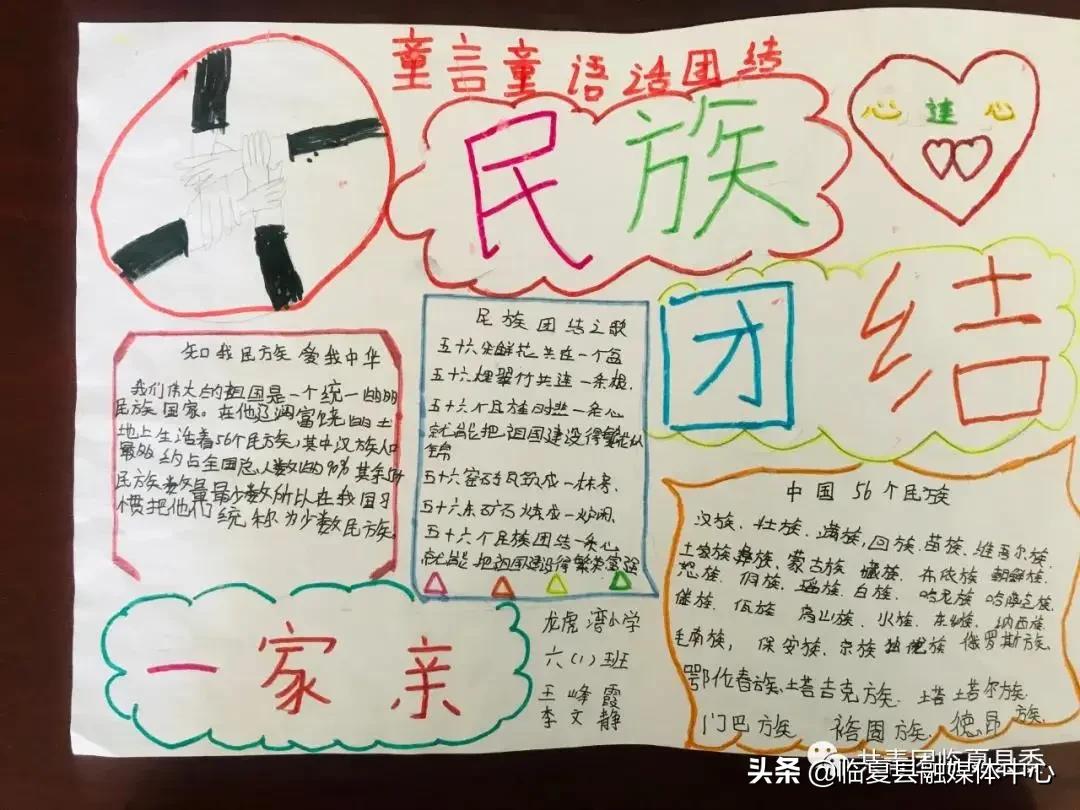 童言童语话团结
民族
心连心
团结
知我民族 爱我中华
我们伟大的祖国是一个统一的
民族国家。在他辽阔富饶的土
地上生活着56个民族,其中汉族人口
最多 约占全国总人数的 其余
民族数量最少数所以在我国习
惯把他们统称为少数民族。
民族团结之歌
五十六朵鲜花共在一个盆
五十六根翠竹共连一条根。
五十六个民族 一条心
就能把祖国建设得繁花似
锦
五十六 砖筑成一
五十六 矿石炼成一炉
五十六个民族团结一条心
就能把祖国建设得繁荣富强
中国56个民族
汉族、壮族、满族,回族、苗族、维吾尔族、
彝族、蒙古族 藏族、布依族 朝鲜族、
侗族、瑶族、白族、哈尼族 哈萨克族、
傣族、 水族、 纳西族
毛南族, 保安族、京族 俄罗斯族、
鄂伦春族、 塔塔尔族、
门巴族 裕固族、德昂族、
一家亲
龙虎湾小学
六(1)班
王峰霞
李文静
共青团临夏县委
头条@临夏县融媒体中心